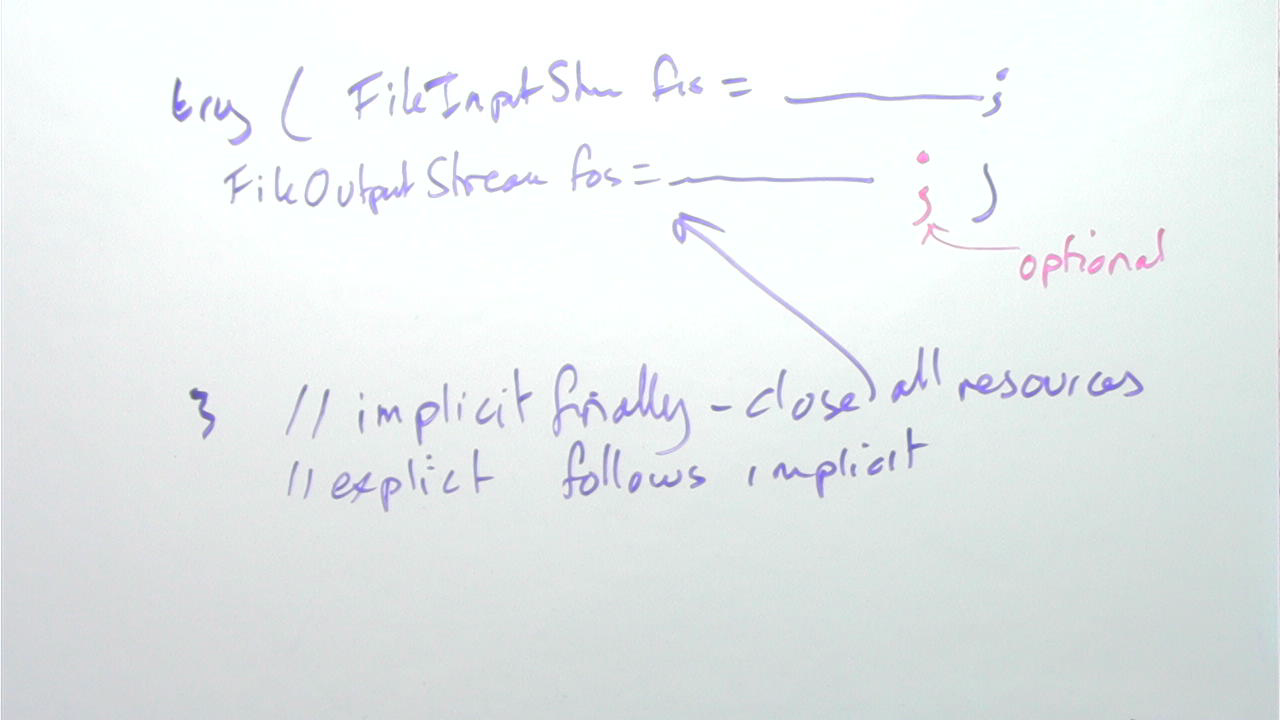 try ( FileInputStrm fis = ________ ;
FileOutputStream fos = ________ ; )
optional
} // implicit finally - close all resources
// explict follows implicit